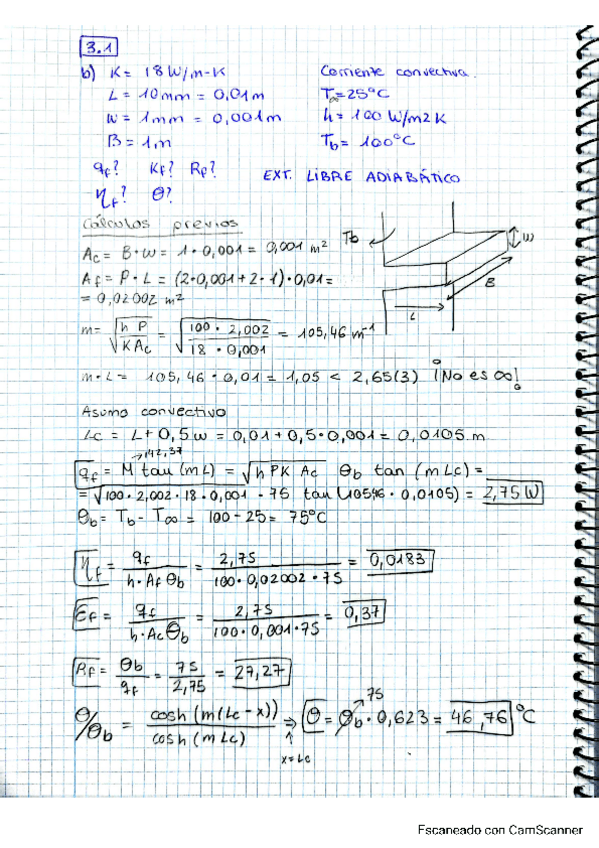 3.1
b) K = 18 W/m-K
L = 10mm = 0,01m
W = 1mm = 0,001m
B = 1m
Corriente convectiva.
T∞=25°C
h = 100 W/m2K
Tb = 100°C
qf? Kf? Rf?
ηf? θ?
EXT. LIBRE ADIABÁTICO
Cálculos previos
Ac = B·W = 1·0,001 = 0,001 m²
Af = P·L = (2·0,001+2·1)·0,01=
= 0,02002 m²
m= √(h P / K Ac) = √(100·2,002 / 18·0,001) = 105,46 m⁻¹
Tb
W
B
L
m·L = 105,46·0,01 = 1,05 < 2,65(3) ¡No es ∞!
Asumo convectivo
Lc = L+0,5w = 0,01+0,5·0,001= 0,0105 m
142,37
qf = M tan (mL) = √h PK Ac θb tan (mLc) =
= √100·2,002·18·0,001 · 75 tan (10546·0,0105) = 2,75 W
θb = Tb - T∞ = 100-25= 75°C
ηf = qf / h·Af θb = 2,75 / 100·0,02002·75 = 0,0183
Ef = qf / h·Ac θb = 2,75 / 100·0,001·75 = 0,37
Rf = θb / qf = 75 / 2,75 = 27,27
75
θ/θb = cosh (m(Lc-x)) / cosh (mLc) ⇒ θ = θb·0,623 = 46,76 °C
x=Lc
Escaneado con CamScanner